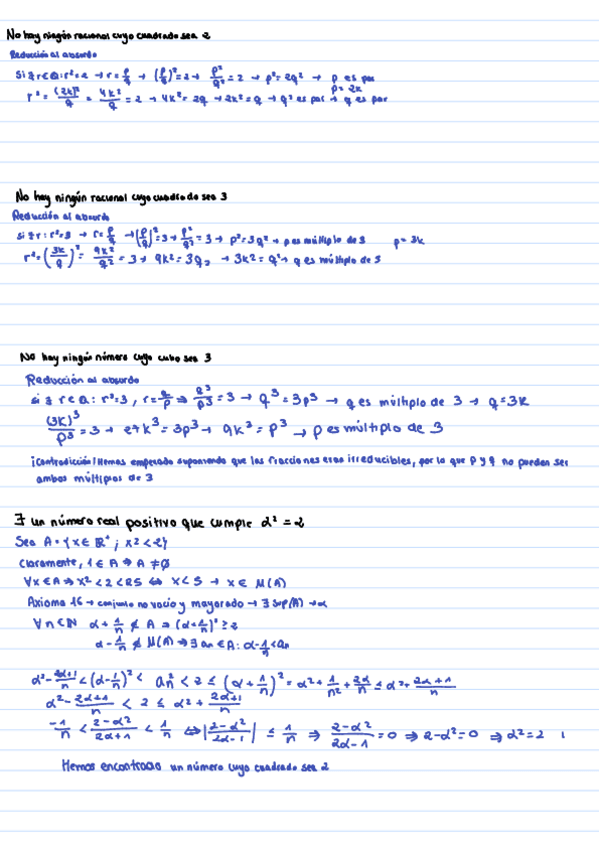 No hay ningún racional cuyo cuadrado sea 2
Reducción al absurdo
Si ∃ r ∈ Q: r²=2 → r = p/q → (p/q)² = 2 → p²/q² = 2 → p² = 2q² → p es par
p = 2k
r² = (2k)²/q = 4k²/q = 2 → 4k² = 2q → 2k² = q → q² es par → q es par
No hay ningún racional cuyo cuadrado sea 3
Reducción al absurdo
si ∃ r: r²=3 → r = p/q → (p/q)² = 3 → p²/q² = 3 → p² = 3q² → p es múltiplo de 3 p = 3k
r² = (3k/q)² = 9k²/q² = 3 → 9k² = 3q, → 3k² = q² → q es múltiplo de 3
No hay ningún número cuyo cubo sea 3
Reducción al absurdo
si ∃ r ∈ Q: r³=3, r = q/p ⇒ q³/p³ = 3 → q³ = 3p³ → q es múltiplo de 3 → q = 3k
(3k)³/p³ = 3 → 27k³ = 3p³ → 9k³ = p³ → p es múltiplo de 3
¡Contradicción! Hemos empezado suponiendo que las fracciones eran irreducibles, por lo que p y q no pueden ser
ambos múltiplos de 3
∃ un número real positivo que cumple α² = 2
Sea A = {x ∈ R⁺; x² < 2}
Claramente, 1 ∈ A ⇒ A ≠ ∅
∀x ∈ A ⇒ x² < 2 < 25 ⇔ x < 5 → x ∈ M(A)
Axioma 16 → conjunto no vacío y mayorado → ∃ Sup(A) → α
∀ n ∈ N α + 1/n ∉ A ⇒ (α + 1/n)² ≥ 2
α - 1/n ∉ M(A) ⇒ ∃ an ∈ A: α - 1/n < an
α² - 2α+1/n < (α - 1/n)² < an² < 2 ≤ (α + 1/n)² = α² + 1/n² + 2α/n ≤ α² + 2α+1/n
α² - 2α+1/n < 2 ≤ α² + 2α+1/n
-1/n < 2-α²/2α+1 < 1/n ⇔ |2-α²/2α-1| ≤ 1/n ⇒ 2-α²/2α-1 = 0 ⇒ 2-α² = 0 ⇒ α² = 2
Hemos encontrado un número cuyo cuadrado sea 2